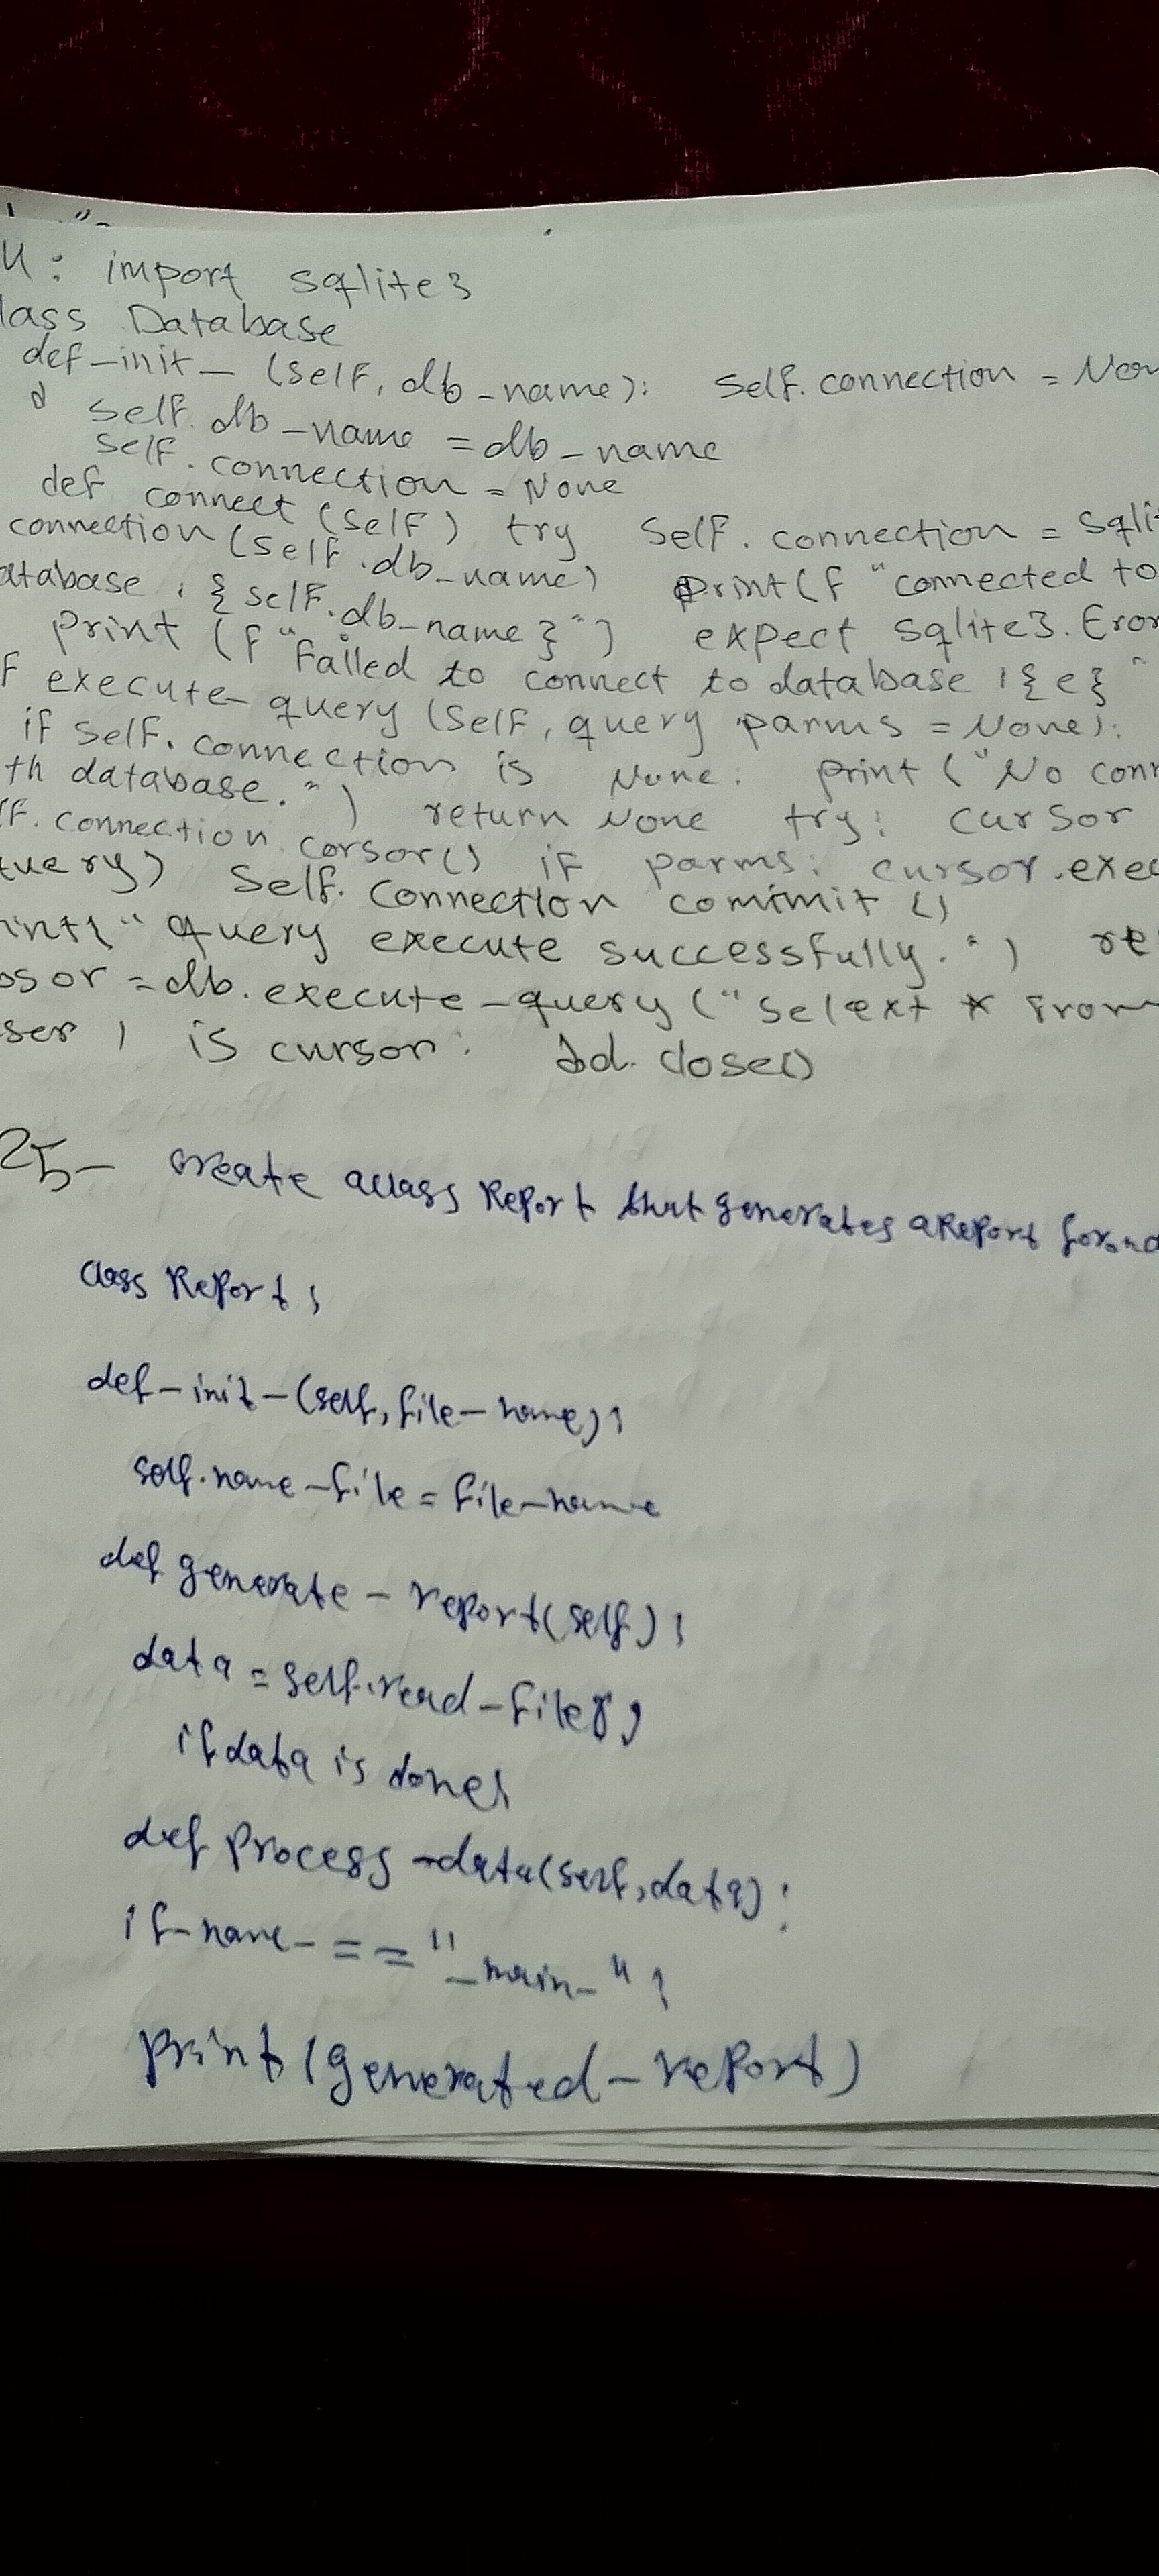 : import sqlite3
lass Database
def-init- (self, db-name): self.connection = Non
self.db-name = db-name
self.connection = None
def connect (self) try self.connection = sqli
connection (self.db-name) print(f "connected to
atabase : {self.db-name}") expect sqlite3.Eror
print (f "Failed to connect to database : {e}"
f execute-query (self, query parms = None):
if self.connection is None: print ("No conn
th database.") return None try: cursor
f.connection corsor() if parms: cursor.exec
query) self.connection commit ()
int( "query execute successfully.") re
osor = db.execute-query ("selext * from
ser ) is cursor: bd.close()
25- create aclass Report that generates aReport
class Report:
def-init-(self, file-name):
self.name-file = file-name
def generate-report(self):
data = self.read-file
if data is done:
def process-data(self, data):
if-name- == "-main-":
print(generated-report)